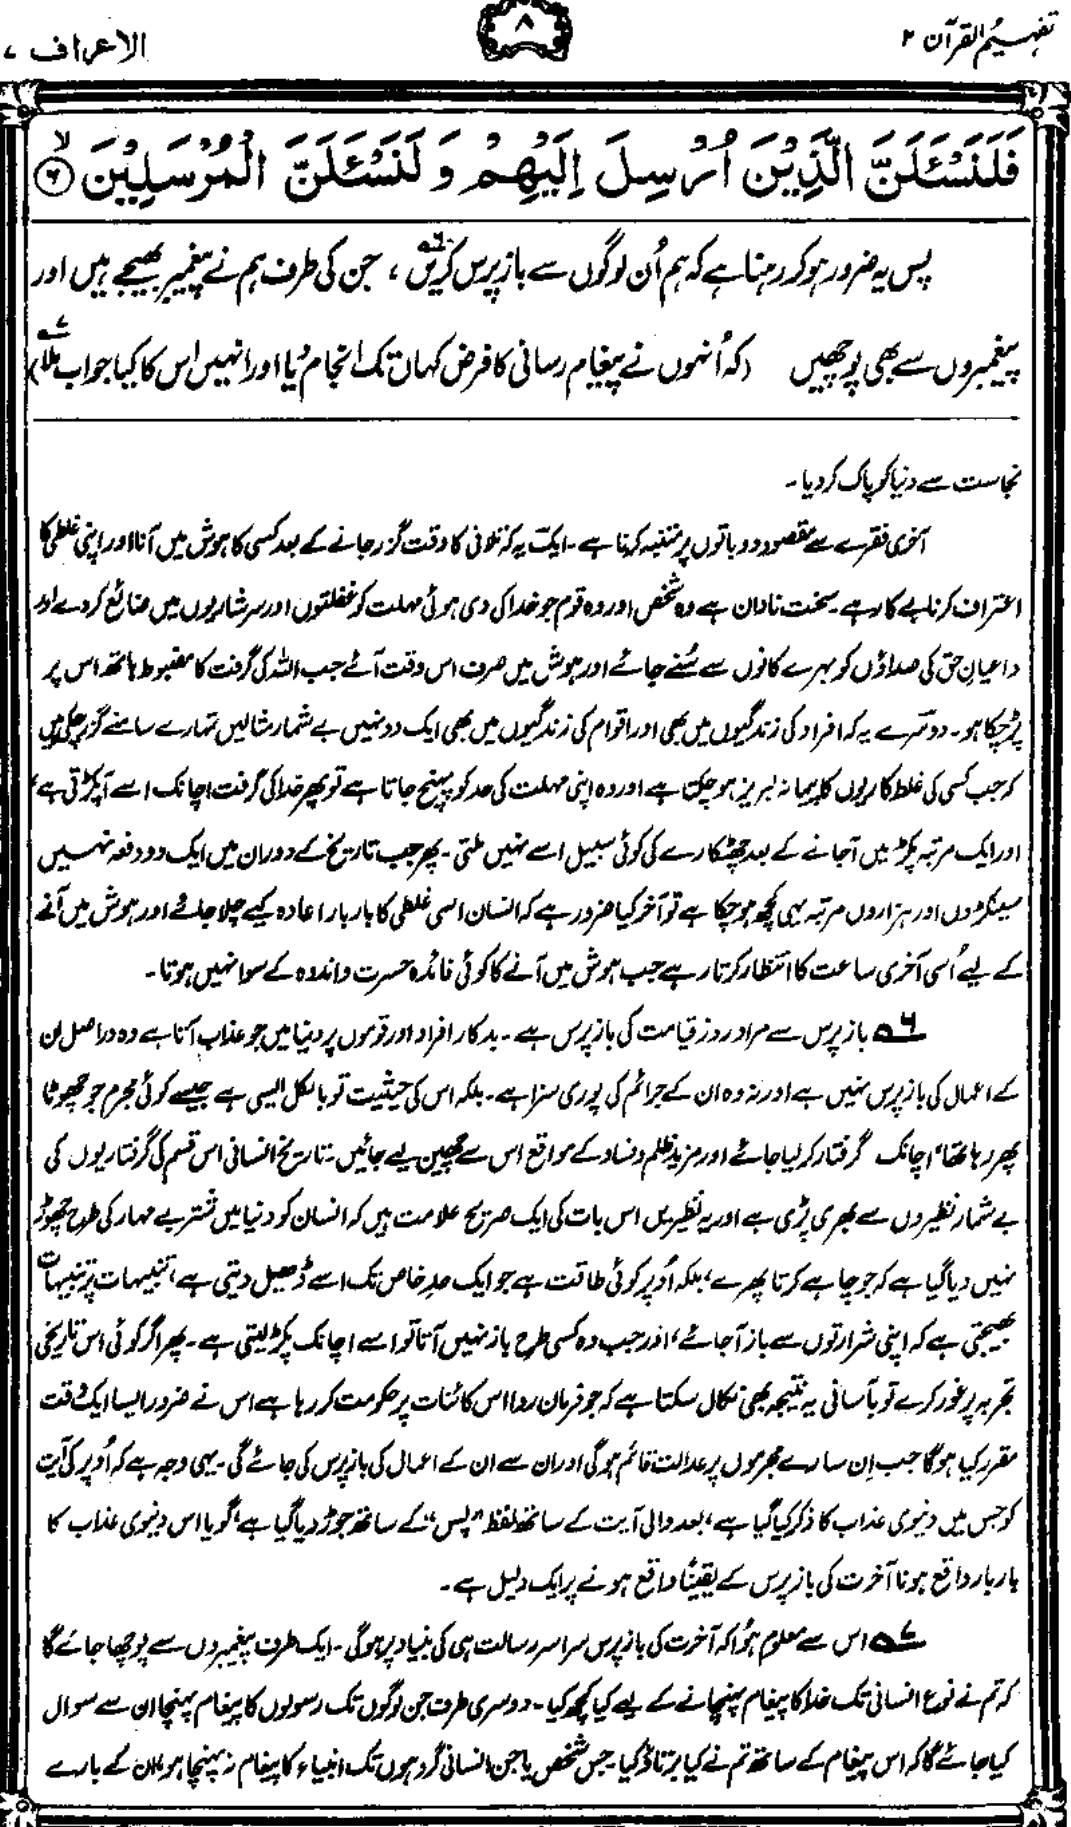 تفہیم القرآن ۲
۸
الاعراف ۷
فَلَنَسْـَٔلَنَّ الَّذِيْنَ اُرْسِلَ اِلَيْهِمْ وَ لَنَسْـَٔلَنَّ الْمُرْسَلِيْنَ ۙ۶
پس یہ ضرور ہو کر رہنا ہے کہ ہم اُن لوگوں سے باز پرس کریں۶، جن کی طرف ہم نے پیغمبر بھیجے ہیں اور
پیغمبروں سے بھی پوچھیں (کہ اُنہوں نے پیغام رسانی کا فرض کہاں تک انجام دیا اور انہیں اس کا کیا جواب ملا۷)
نجاست سے دنیا کو پاک کر دیا۔
آخری فقرے سے مقصود دو باتوں پر متنبہ کرنا ہے۔ ایک یہ کہ تلافی کا وقت گزر جانے کے بعد کسی کا ہوش میں آنا اور اپنی غلطی کا
اعتراف کرنا بے کار ہے۔ سخت نادان ہے وہ شخص اور وہ قوم جو خدا کی دی ہوئی مہلت کو غفلتوں اور سرشاریوں میں ضائع کر دے اور
داعیانِ حق کی صداؤں کو بہرے کانوں سے سُنے جائے اور ہوش میں صرف اس وقت آئے جب اللہ کی گرفت کا مضبوط ہاتھ اس پر
پڑ چکا ہو۔ دوسرے یہ کہ افراد کی زندگیوں میں بھی اور اقوام کی زندگیوں میں بھی ایک دو نہیں بے شمار مثالیں تمہارے سامنے گزر چکی ہیں
کہ جب کسی کی غلط کاریوں کا پیمانہ لبریز ہو چکتا ہے اور وہ اپنی مہلت کی حد کو پہنچ جاتا ہے تو پھر خدا کی گرفت اچانک اسے آ پکڑتی ہے،
اور ایک مرتبہ پکڑ میں آ جانے کے بعد چھٹکارے کی کوئی سبیل اسے نہیں ملتی۔ پھر جب تاریخ کے دوران میں ایک دو دفعہ نہیں
سینکڑوں اور ہزاروں مرتبہ یہی کچھ ہو چکا ہے تو آخر کیا ضرور ہے کہ انسان اسی غلطی کا بار بار اعادہ کیے چلا جائے اور ہوش میں آنے
کے لیے اُسی آخری ساعت کا انتظار کرتا رہے جب ہوش میں آنے کا کوئی فائدہ حسرت و اندوہ کے سوا نہیں ہوتا۔
۶ باز پرس سے مراد روز قیامت کی باز پرس ہے۔ بدکار افراد اور قوموں پر دنیا میں جو عذاب آتا ہے وہ دراصل ان
کے اعمال کی باز پرس نہیں ہے اور نہ وہ ان کے جرائم کی پوری سزا ہے۔ بلکہ اس کی حیثیت تو بالکل ایسی ہے جیسے کوئی مجرم جو چھوٹا
پھر رہا تھا، اچانک گرفتار کر لیا جائے اور مزید ظلم و فساد کے مواقع اس سے چھین لیے جائیں۔ تاریخ انسانی اس قسم کی گرفتاریوں کی
بے شمار نظیروں سے بھری پڑی ہے اور یہ نظیریں اس بات کی ایک صریح علامت ہیں کہ انسان کو دنیا میں شتر بے مہار کی طرح چھوڑ
نہیں دیا گیا ہے کہ جو چاہے کرتا پھرے، بلکہ اُوپر کوئی طاقت ہے جو ایک حدِ خاص تک اسے ڈھیل دیتی ہے، تنبیہات پر تنبیہات
بھیجتی ہے کہ اپنی شرارتوں سے باز آ جائے، اور جب وہ کسی طرح باز نہیں آتا تو اسے اچانک پکڑ لیتی ہے۔ پھر اگر کوئی اس تاریخی
تجربہ پر غور کرے تو بآسانی یہ نتیجہ بھی نکال سکتا ہے کہ جو فرمان روا اس کائنات پر حکومت کر رہا ہے اس نے ضرور ایسا ایک وقت
مقرر کیا ہوگا جب اِن سارے مجرموں پر عدالت قائم ہوگی اور ان سے ان کے اعمال کی باز پرس کی جائے گی۔ یہی وجہ ہے کہ اُوپر کی آیت
کو جس میں دنیوی عذاب کا ذکر کیا گیا ہے، بعد والی آیت کے ساتھ لفظ "پس" کے ساتھ جوڑ دیا گیا ہے، گویا اس دنیوی عذاب کا
بار بار واقع ہونا آخرت کی باز پرس کے یقیناً واقع ہونے پر ایک دلیل ہے۔
۷ اس سے معلوم ہُوا کہ آخرت کی باز پرس سراسر رسالت ہی کی بنیاد پر ہوگی۔ ایک طرف پیغمبروں سے پوچھا جائے گا
کہ تم نے نوع انسانی تک خدا کا پیغام پہنچانے کے لیے کیا کچھ کیا۔ دوسری طرف جن لوگوں تک رسولوں کا پیغام پہنچا ان سے سوال
کیا جائے گا کہ اس پیغام کے ساتھ تم نے کیا برتاؤ کیا۔ جس شخص یا جن انسانی گروہوں تک انبیاء کا پیغام نہ پہنچا ہو، ان کے بارے